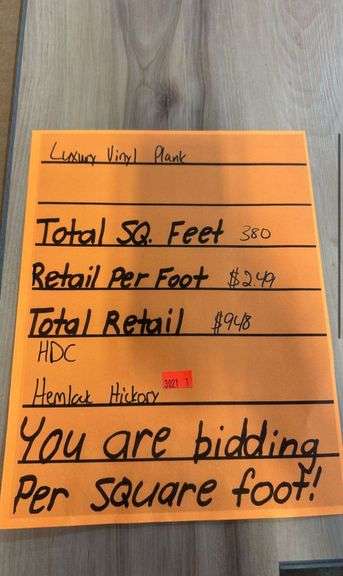 Luxury Vinyl Plank
Total SQ. Feet 380
Retail Per Foot $2.49
Total Retail $948
HDC
3021 1
Hemlock Hickory
You are bidding
Per square foot!